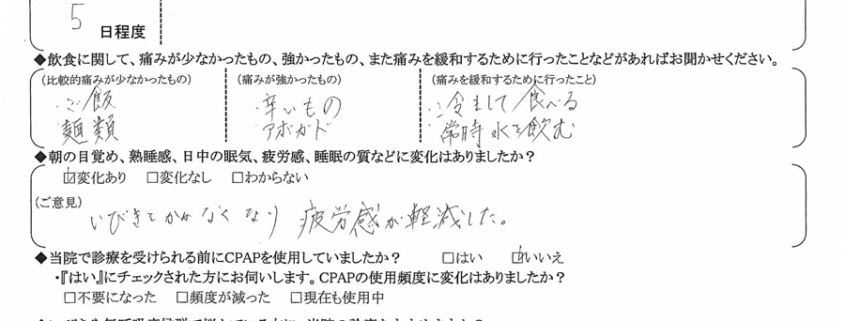 5
日程度
◆飲食に関して、痛みが少なかったもの、強かったもの、また痛みを緩和するために行ったことなどがあればお聞かせください。
(比較的痛みが少なかったもの) (痛みが強かったもの) (痛みを緩和するために行ったこと)
・ご飯 ・辛いもの ・冷まして食べる
麺類 アボガド 常時水を飲む
◆朝の目覚め、熟睡感、日中の眠気、疲労感、睡眠の質などに変化はありましたか?
☑変化あり □変化なし □わからない
(ご意見)
いびきをかかなくなり 疲労感が軽減した。
◆当院で診療を受けられる前にCPAPを使用していましたか? □はい ☑いいえ
・『はい』にチェックされた方にお伺いします。CPAPの使用頻度に変化はありましたか?
□不要になった □頻度が減った □現在も使用中